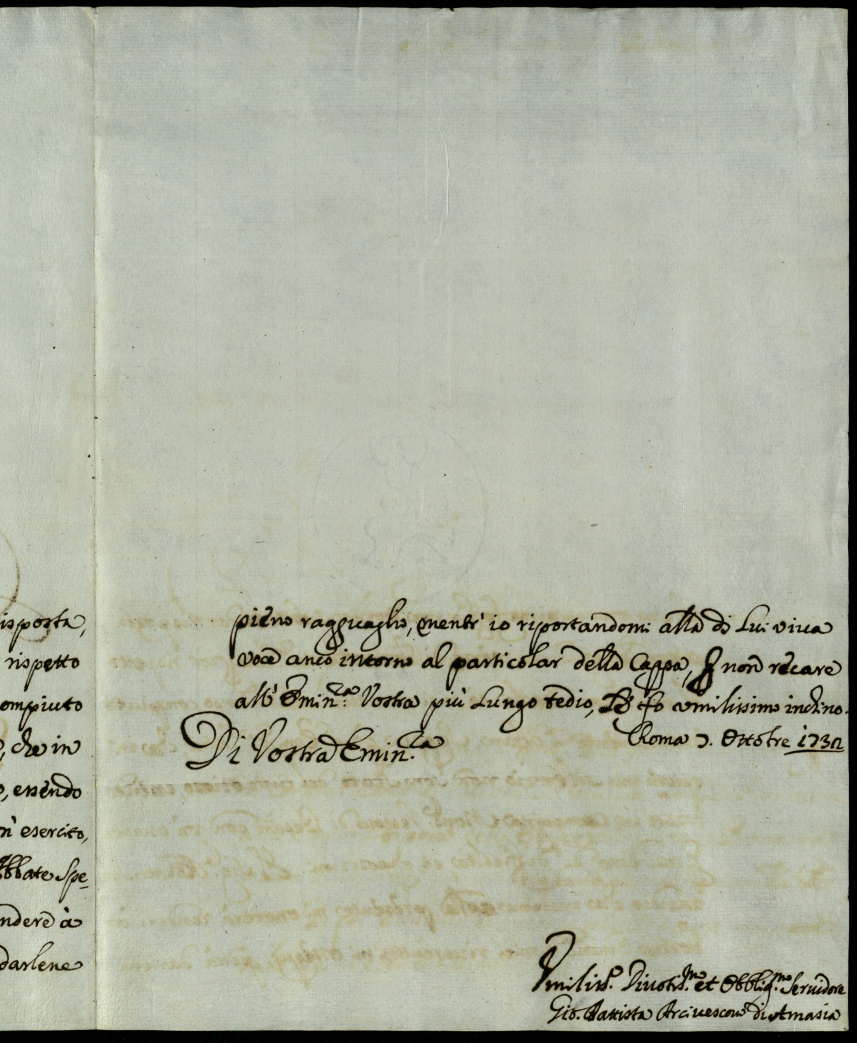 isposta,
rispetto
ompiuto
, che in
o, essendo
n esercito,
Abbate Spe=
ndere à
darlene
pieno ragguaglio, mentr' io riportandomi alla di Lui viva
voce anco intorno al particolar della Cappa, p non recare
all' Emin.za Vostra più Lungo tedio, Le fo umilissimo inchino.
Di Vostra Emin.za
Roma 7. Ottobre 1730
Umiliss.o Divotis.mo et Obblig.mo Servidore
Gio. Battista Arcivescovo di Amasia